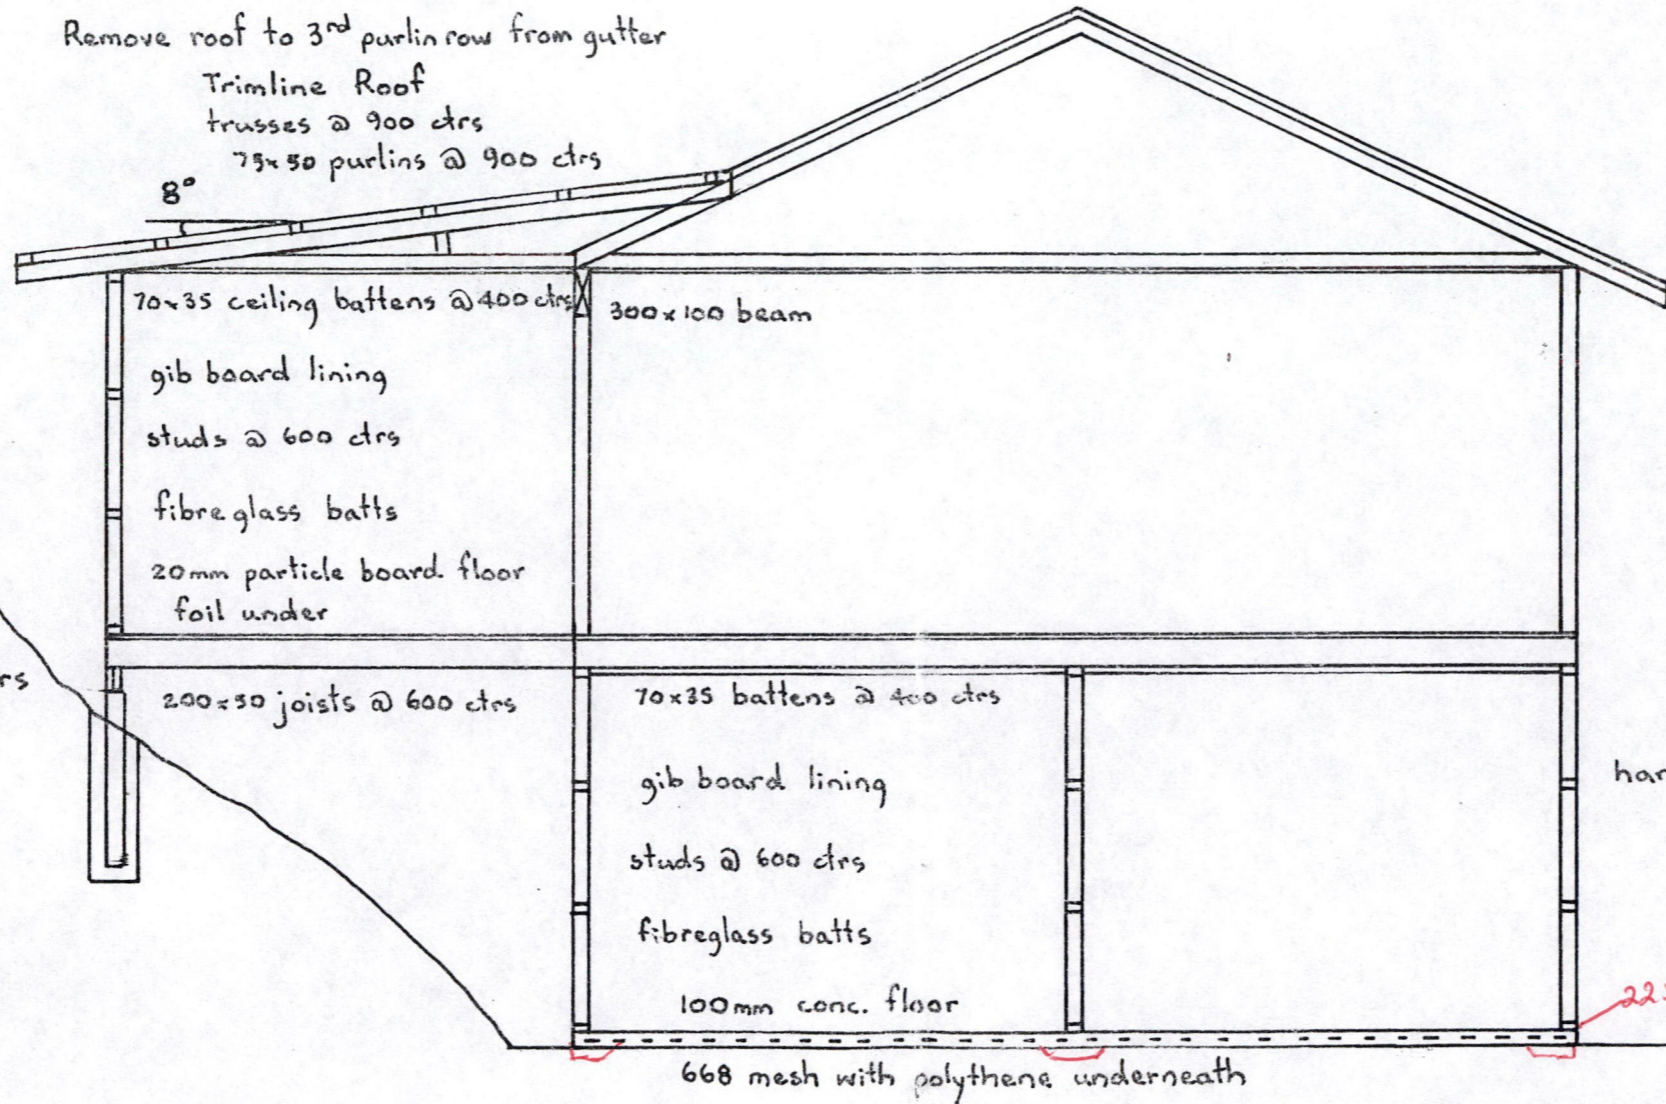 Remove roof to 3rd purlin row from gutter
Trimline Roof
trusses @ 900 ctrs
75x50 purlins @ 900 ctrs
8°
70x35 ceiling battens @ 400 ctrs
300x100 beam
gib board lining
studs @ 600 ctrs
fibreglass batts
20mm particle board floor
foil under
rs
200x50 joists @ 600 ctrs
70x35 battens @ 400 ctrs
gib board lining
har
studs @ 600 ctrs
fibreglass batts
100mm conc. floor
22
668 mesh with polythene underneath